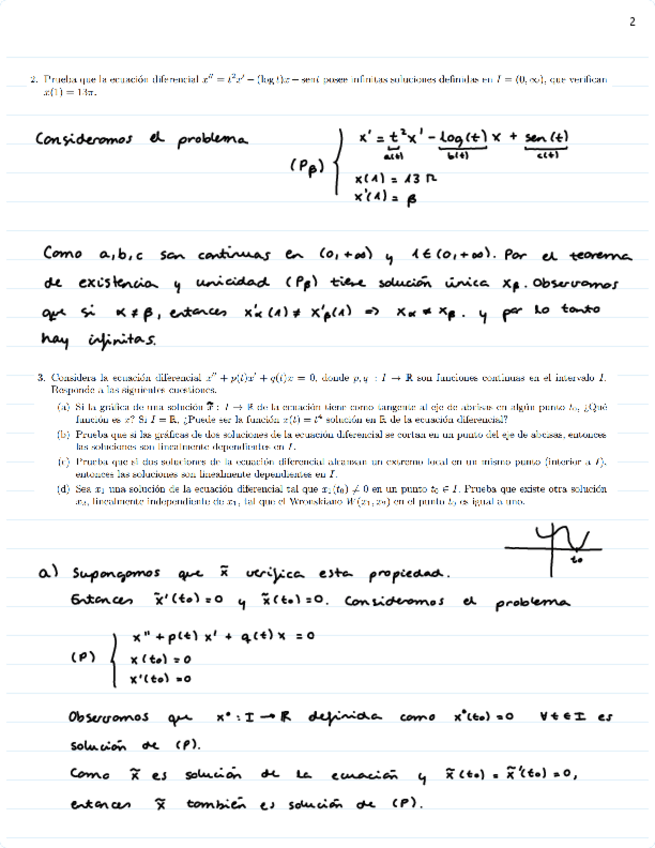 2
2. Prueba que la ecuación diferencial x'' = t²x' − (log t)x − sen t posee infinitas soluciones definidas en I = (0, ∞), que verifican
x(1) = 13π.
Consideramos el problema
(Pβ) { x' = t²x' - log(t) x + sen(t)
a(t) b(t) c(t)
x(1) = 13 π
x'(1) = β
Como a,b,c son continuas en (0,+∞) y 1 ∈ (0,+∞). Por el teorema
de existencia y unicidad (Pβ) tiene solución única xβ. Observamos
que si α ≠ β, entonces x'α(1) ≠ x'β(1) => xα ≠ xβ. y por lo tanto
hay infinitas.
3. Considera la ecuación diferencial x'' + p(t)x' + q(t)x = 0, donde p, q : I → ℝ son funciones continuas en el intervalo I.
Responde a las siguientes cuestiones.
(a) Si la gráfica de una solución x̃ : I → ℝ de la ecuación tiene como tangente al eje de abcisas en algún punto t₀, ¿Qué
función es x? Si I = ℝ, ¿Puede ser la función x(t) = t⁴ solución en ℝ de la ecuación diferencial?
(b) Prueba que si las gráficas de dos soluciones de la ecuación diferencial se cortan en un punto del eje de abcisas, entonces
las soluciones son linealmente dependientes en I.
(c) Prueba que si dos soluciones de la ecuación diferencial alcanzan un extremo local en un mismo punto (interior a I),
entonces las soluciones son linealmente dependientes en I.
(d) Sea x₁ una solución de la ecuación diferencial tal que x₁(t₀) ≠ 0 en un punto t₀ ∈ I. Prueba que existe otra solución
x₂, linealmente independiente de x₁, tal que el Wronskiano W(x₁, x₂) en el punto t₀ es igual a uno.
to
a) Supongamos que x̃ verifica esta propiedad.
Entonces x̃'(to) = 0 y x̃(to) = 0. Consideremos el problema
(P) { x'' + p(t) x' + q(t) x = 0
x(to) = 0
x'(to) = 0
Observamos que x* : I → ℝ definida como x*(to) = 0 ∀t∈I es
solución de (P).
Como x̃ es solución de la ecuación y x̃(to) = x̃'(to) = 0,
entonces x̃ también es solución de (P).